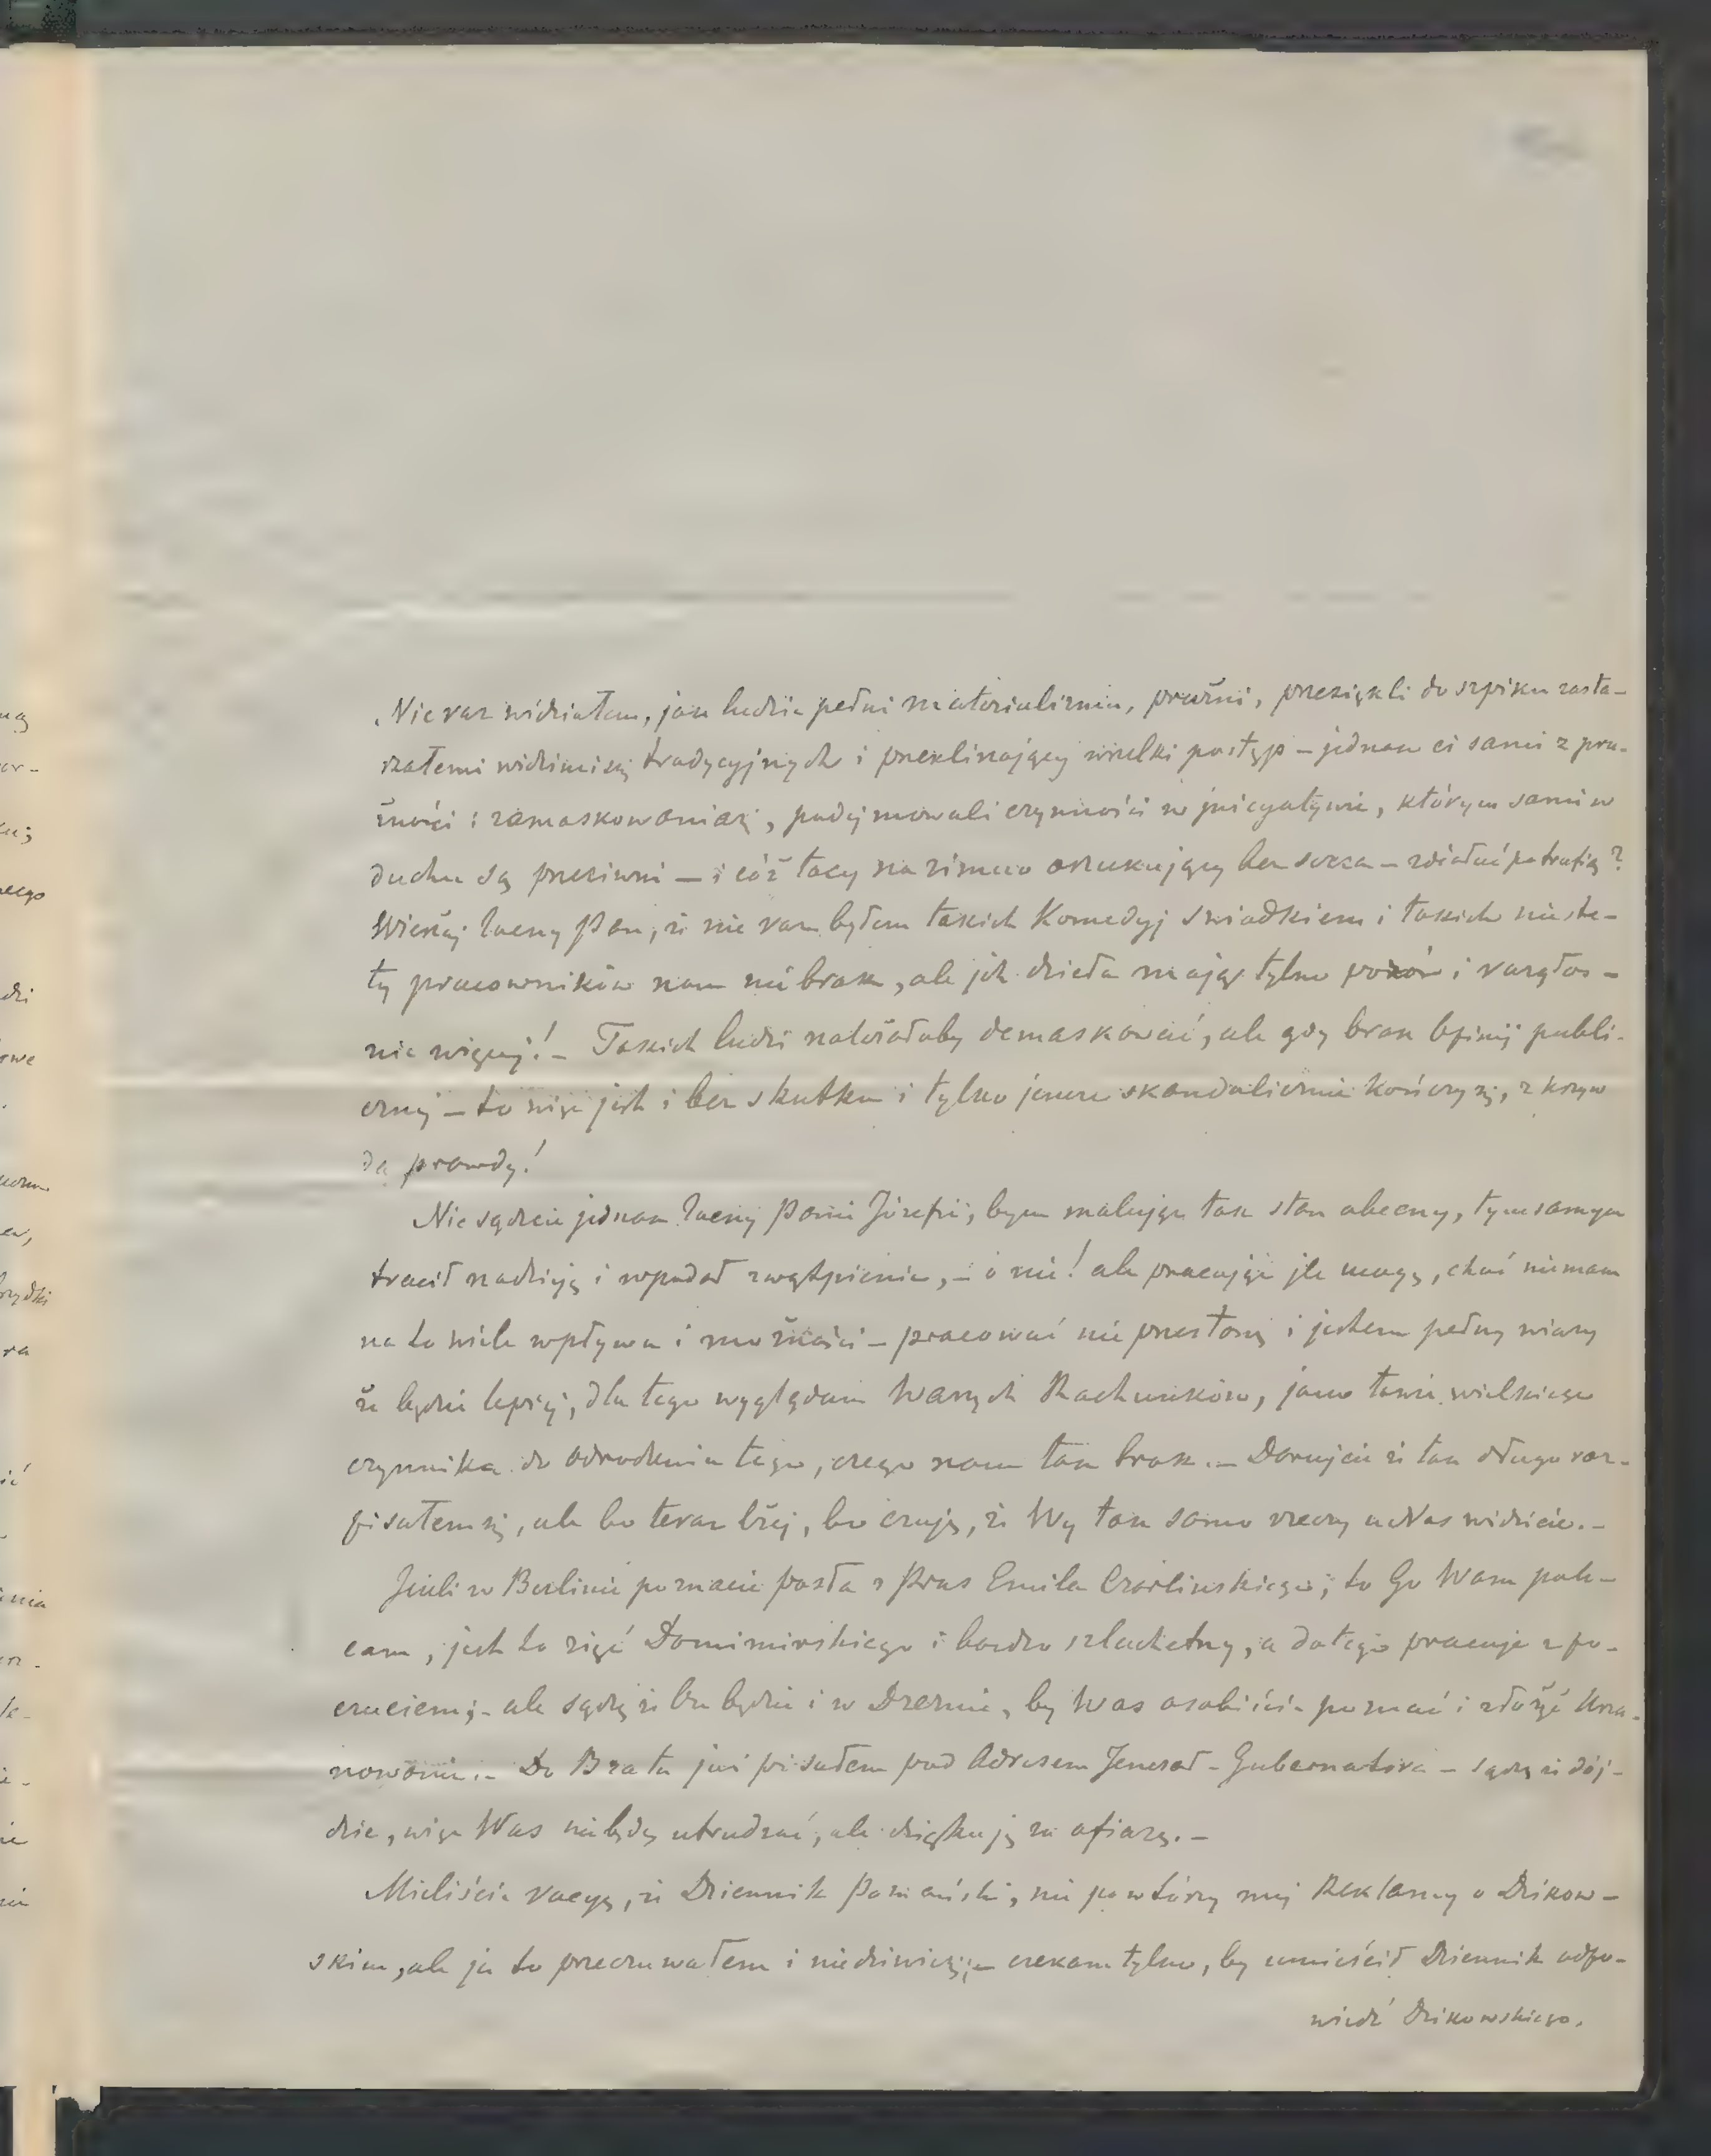 Nie raz widziałem, jak ludzie pełni materializmu, prużni, przesiąkli do szpiku zasta-
rzałemi widzimisię tradycyjnych i przeklinający wszelki postęp – jednak ci sami z pru-
żności i zamaskowania się, podejmowali czynności w jnicyatywie, którym sami w
duchu są przeciwni – i cóż tacy na zimno oszukujący bez serca – zdziałać potrafią?
Wierzaj Zacny Pan, iż nie raz byłem takich Komedyj swiadkiem i takich nieste-
ty pracowników nam nie brak, ale jch dzieła mają tylko pozór i rozgłos –
nic więcej! – Takich ludzi należałoby demaskować, ale gdy brak Opinij publi-
cznej – to więc jest i bez skutku i tylko jeszcze skandalicznie kończy się, z krzyw
dą prawdy!
Nie sądźcie jednak Zacny Panie Józefie, bym malując tak stan obecny, tym samym
tracił nadzieję i wpadał zwątpienie, – o nie! ale pracując jle mogę, choć nie mam
na to wiele wpływu i możności – pracować nie przestanę i jestem pełny wiary
że będzie lepiej, dla tego wyglądam Waszych Rachunków, jako także wielkiego
czynnika do odrodzenia tego, czego nam tak brak. – Darujcie iż tak długo roz-
pisałem się, ale bo teraz lżej, bo czuję, iż Wy tak samo rzeczy u Nas widzicie. –
Jeżeli w Berlinie poznacie posła z Prus Emila Czarlinskiego, to Go Wam pole-
cam, jest to zięć Donimirskiego i bardzo szlachetny, a do tego pracuje z po-
czuciem; – ale sądzę iż On będzie i w Dreznie, by Was osobiście poznać i złożyć Usza-
nowanie. – Do Brata już pisałem pod Adresem Jenerał-Gubernatora – sądzę iż dój-
dzie, więc Was nie będę utrudzać, ale dziękuję za ofiarę. –
Mieliście racyą, iż Dziennik Poznański, nie powtórzy mej Reklamy o Dzikow-
skim, ale ja to przeczuwałem i nie dziwię się – czekam tylko, by umieścił Dziennik odpo-
wiedź Dzikowskiego.